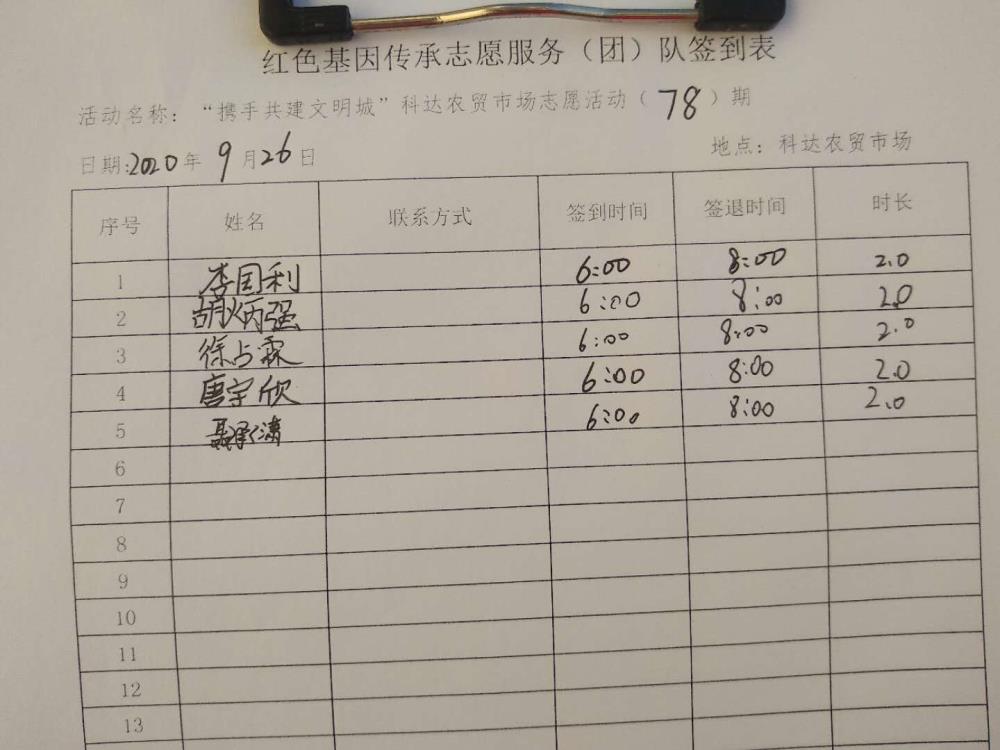 红色基因传承志愿服务（团）队签到表
活动名称：“携手共建文明城”科达农贸市场志愿活动（78）期
日期:2020年9月26日 地点：科达农贸市场
序号 姓名 联系方式 签到时间 签退时间 时长
1 李国利 6:00 8:00 2.0
2 胡炳强 6:00 8:00 2.0
3 徐占霖 6:00 8:00 2.0
4 唐宇欣 6:00 8:00 2.0
5 聂承潇 6:00 8:00 2.0
6
7
8
9
10
11
12
13